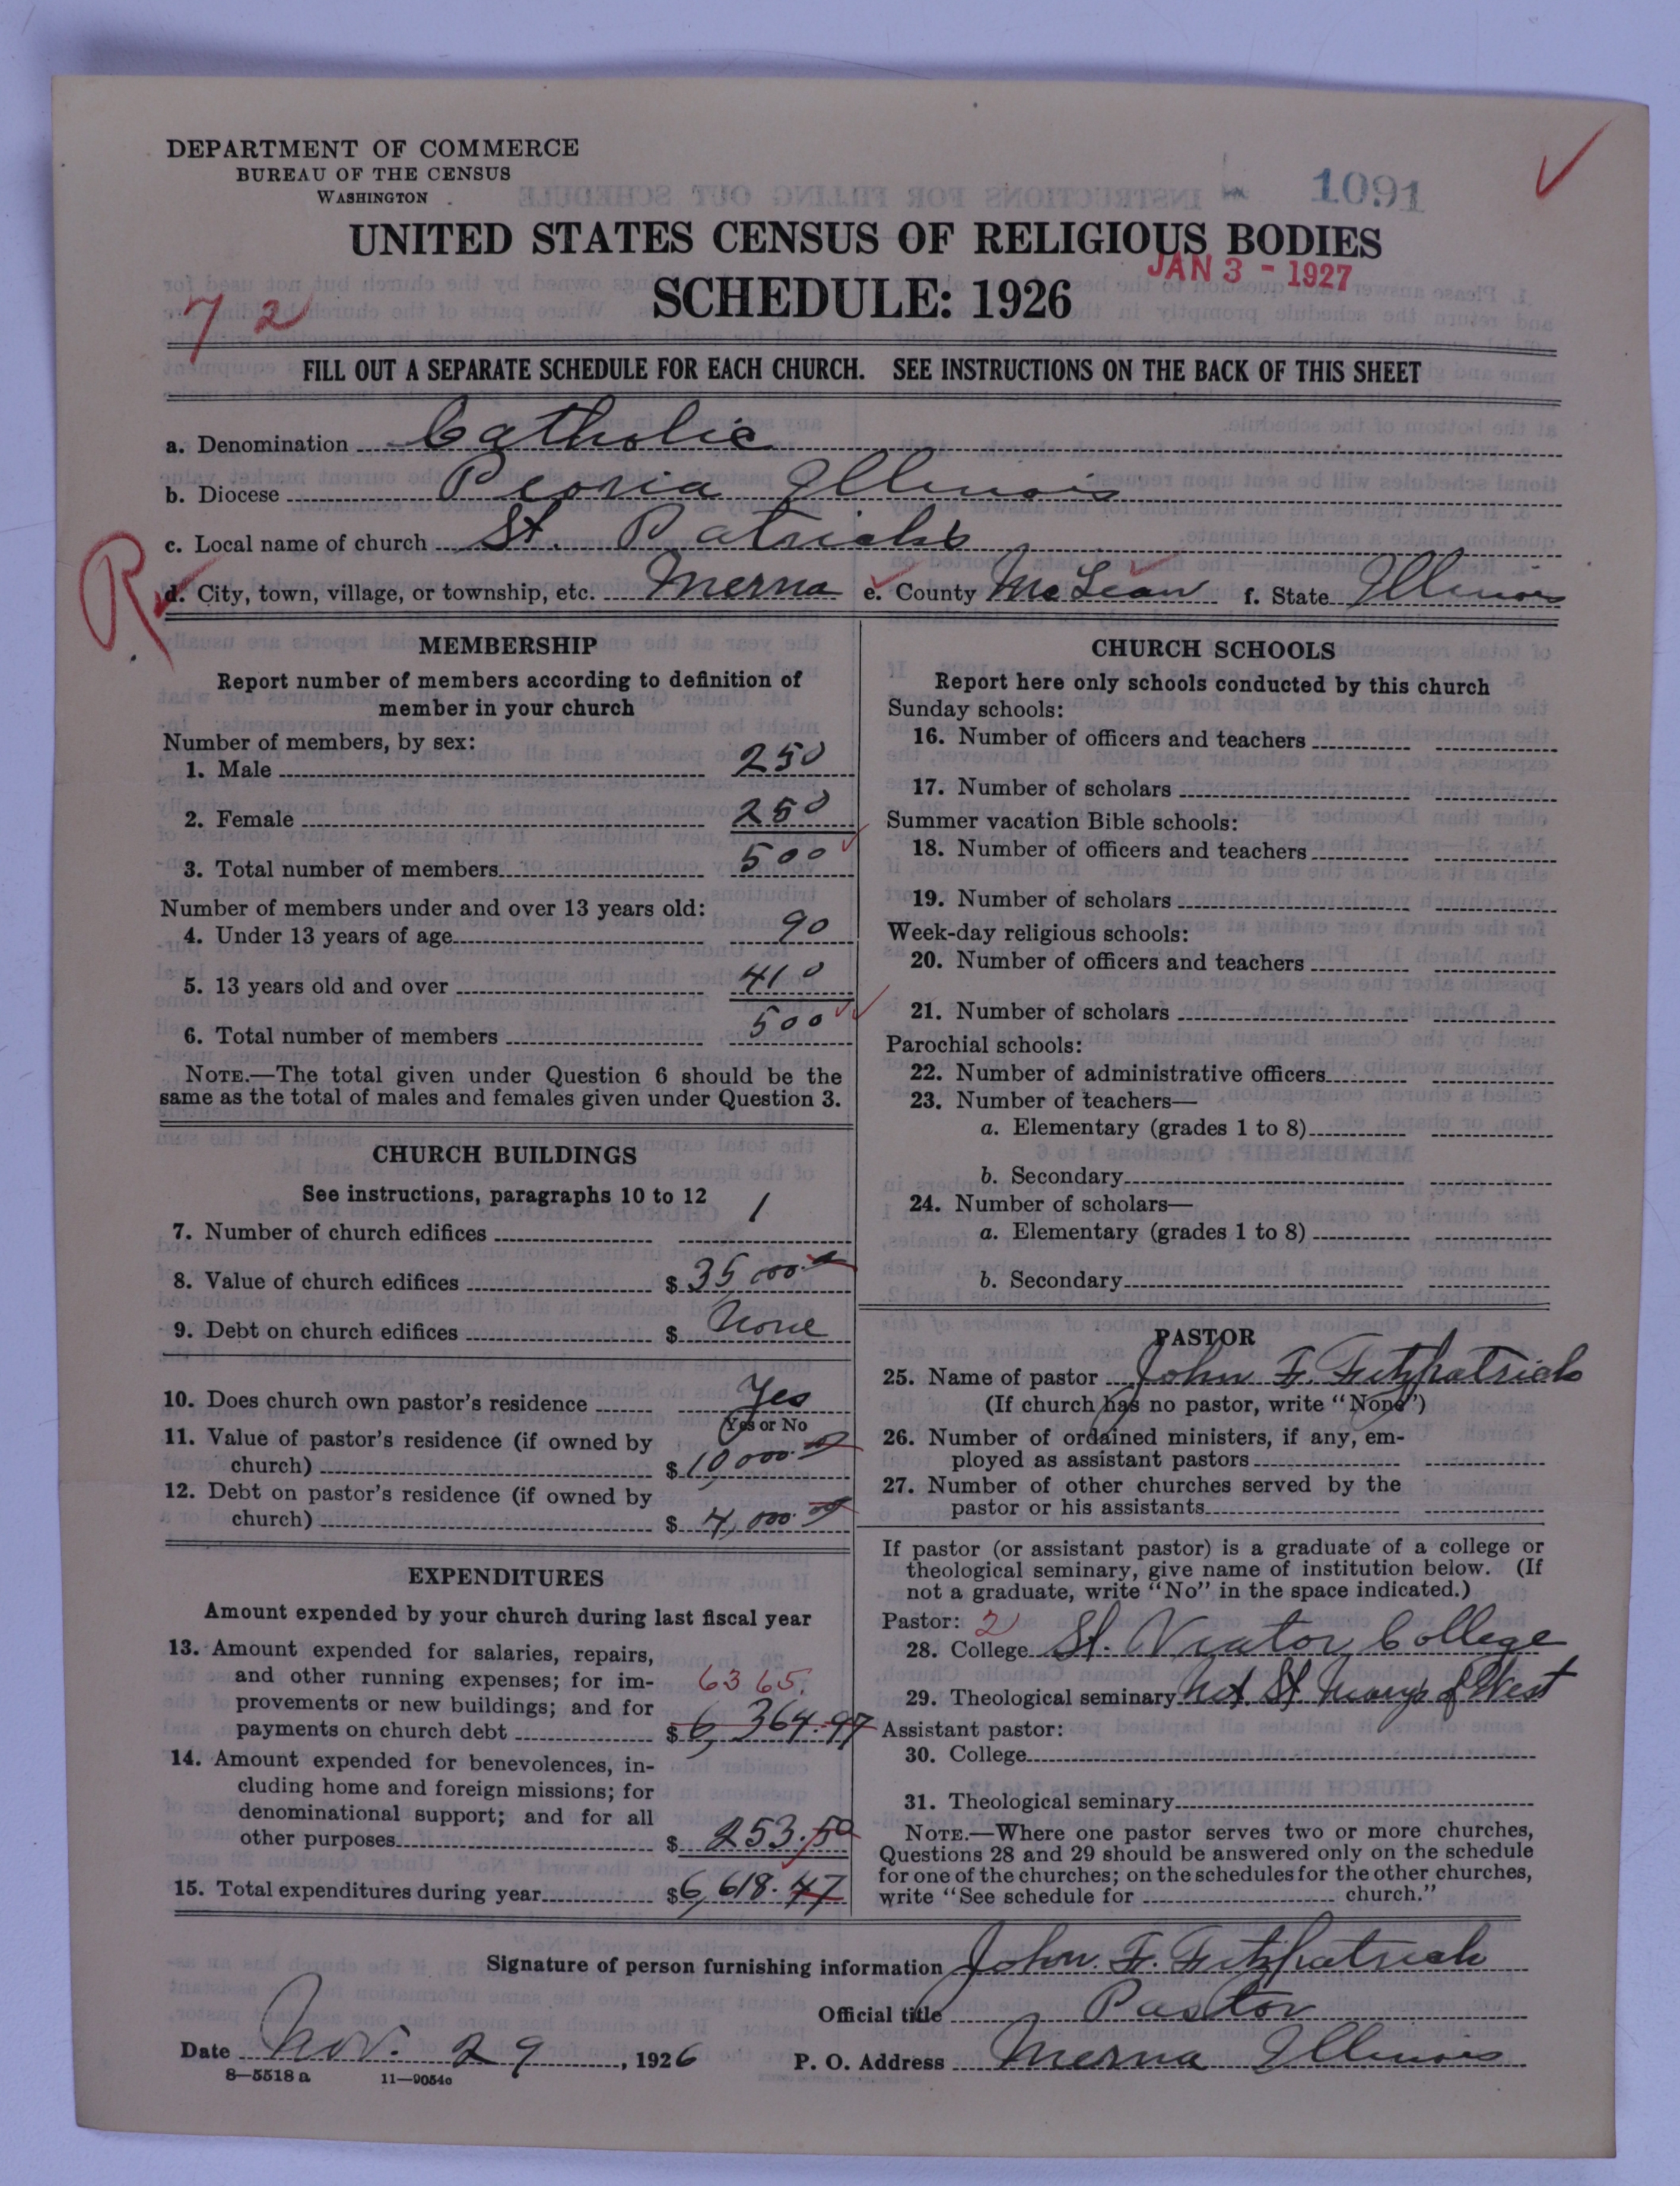 DEPARTMENT OF COMMERCE
BUREAU OF THE CENSUS
WASHINGTON
1091
UNITED STATES CENSUS OF RELIGIOUS BODIES
JAN 3 - 1927
SCHEDULE: 1926
72
FILL OUT A SEPARATE SCHEDULE FOR EACH CHURCH. SEE INSTRUCTIONS ON THE BACK OF THIS SHEET
a. Denomination Catholic
b. Diocese Peoria Illinois
c. Local name of church St. Patricks
R
d. City, town, village, or township, etc. Merna e. County McLean f. State Illinois
MEMBERSHIP
Report number of members according to definition of
member in your church
Number of members, by sex:
1. Male 250
2. Female 250
3. Total number of members 500
Number of members under and over 13 years old:
4. Under 13 years of age 90
5. 13 years old and over 410
6. Total number of members 500
NOTE.—The total given under Question 6 should be the
same as the total of males and females given under Question 3.
CHURCH BUILDINGS
See instructions, paragraphs 10 to 12
7. Number of church edifices 1
8. Value of church edifices $ 35 000.00
9. Debt on church edifices $ None
10. Does church own pastor's residence Yes
(Yes or No
11. Value of pastor's residence (if owned by
church) $ 10,000.00
12. Debt on pastor's residence (if owned by
church) $ 4,000.00
EXPENDITURES
Amount expended by your church during last fiscal year
13. Amount expended for salaries, repairs,
and other running expenses; for im-
provements or new buildings; and for
6365.
payments on church debt $ 6,364.97
14. Amount expended for benevolences, in-
cluding home and foreign missions; for
denominational support; and for all
other purposes $ 253.50
15. Total expenditures during year $ 6,618.47
CHURCH SCHOOLS
Report here only schools conducted by this church
Sunday schools:
16. Number of officers and teachers
17. Number of scholars
Summer vacation Bible schools:
18. Number of officers and teachers
19. Number of scholars
Week-day religious schools:
20. Number of officers and teachers
21. Number of scholars
Parochial schools:
22. Number of administrative officers
23. Number of teachers—
a. Elementary (grades 1 to 8)
b. Secondary
24. Number of scholars—
a. Elementary (grades 1 to 8)
b. Secondary
PASTOR
25. Name of pastor John F. Fitzpatrick
(If church has no pastor, write "None")
26. Number of ordained ministers, if any, em-
ployed as assistant pastors
27. Number of other churches served by the
pastor or his assistants
If pastor (or assistant pastor) is a graduate of a college or
theological seminary, give name of institution below. (If
not a graduate, write "No" in the space indicated.)
Pastor: 2
28. College St. Viator College
29. Theological seminary Mt St. Mary's of West
Assistant pastor:
30. College
31. Theological seminary
NOTE.—Where one pastor serves two or more churches,
Questions 28 and 29 should be answered only on the schedule
for one of the churches; on the schedules for the other churches,
write "See schedule for church."
Signature of person furnishing information John. F. Fitzpatrick
Official title Pastor
Date Nov. 29, 1926 P. O. Address Merna Illinois
8—5518 a 11—9054c